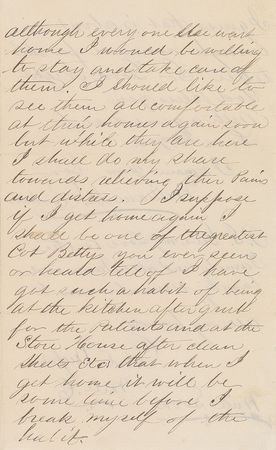 although every one else went
home I would be willing
to stay and take care of
them. I should like to
see them all comfortable
at their homes again soon
but while they are here
I shall do my share
towards relieving their Pains
and distress. I suppose
if I get home again I
shall be one of the greatest
Cot Bettys you ever seen
or heard tell of I have
got such a habit of being
at the kitchen after grub
for the Patients and at the
Store House after clean
Sheets &c that when I
get home it will be
some time before I
break myself of the
habit.